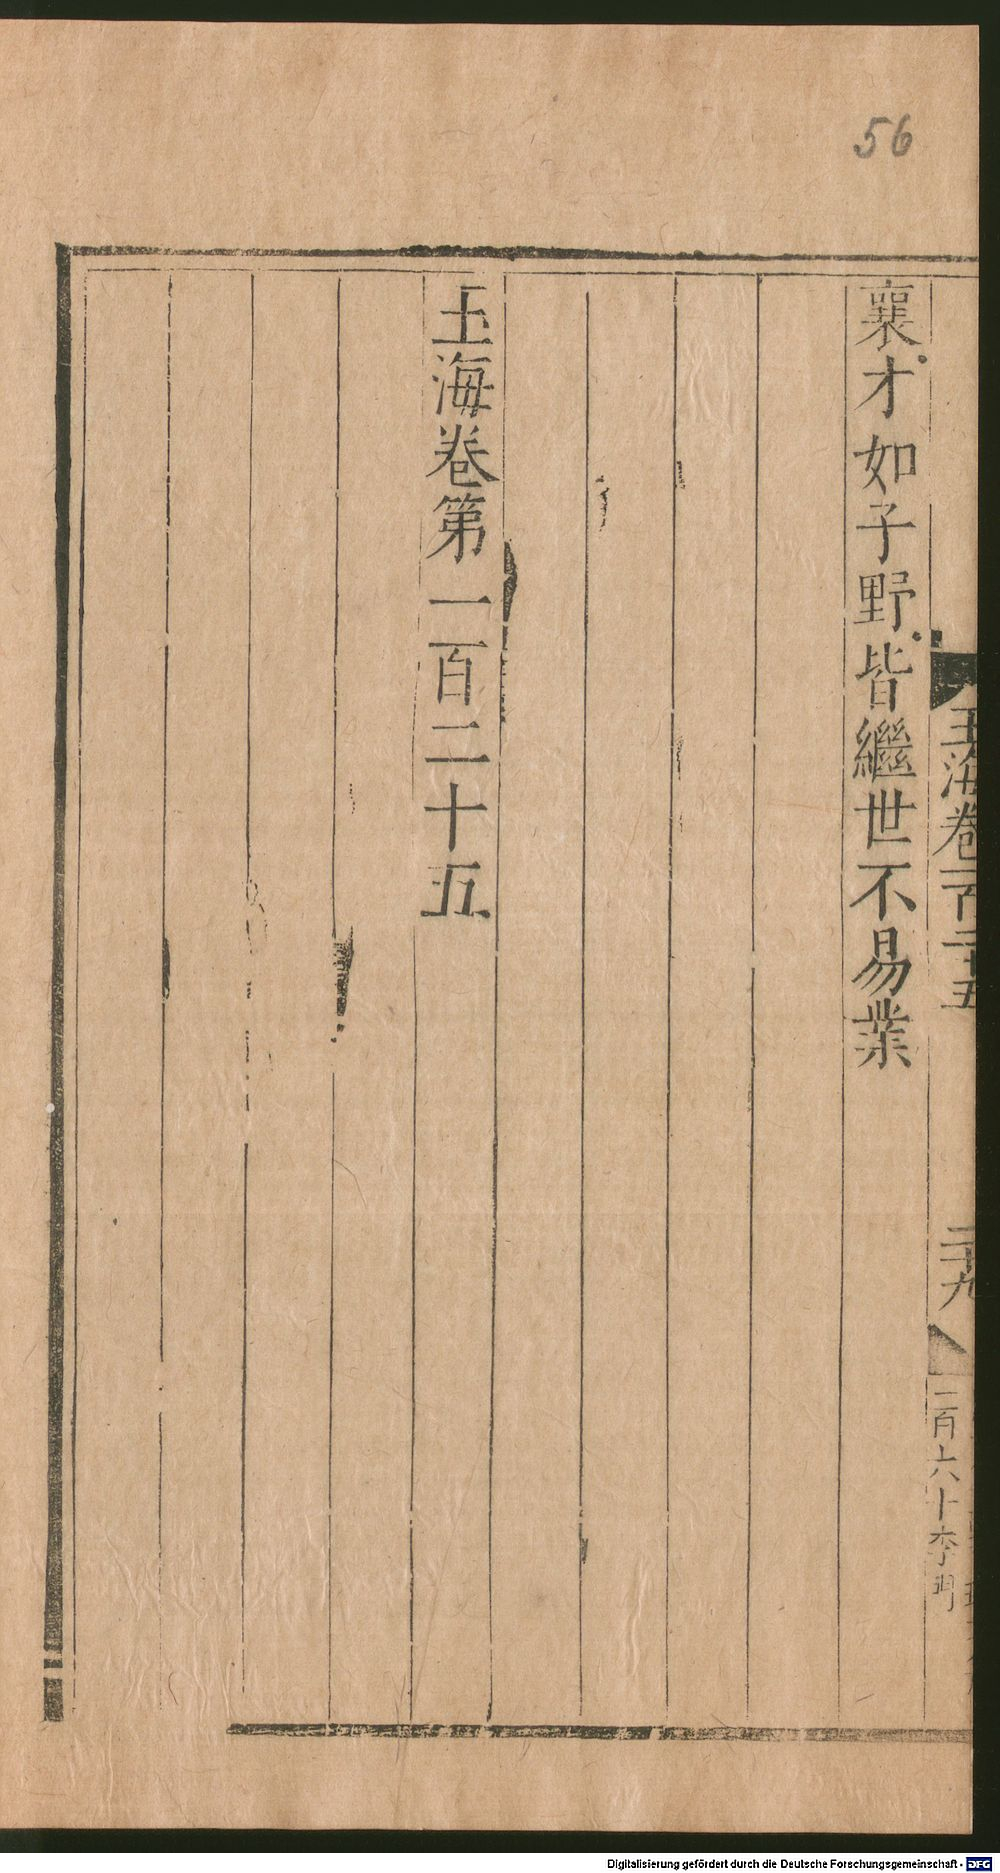 56
襄才如子野皆繼世不易業
玉海卷第一百二十五
玉海卷一百二十五
二十九
二百六十李
Digitalisierung gefördert durch die Deutsche Forschungsgemeinschaft - DFG